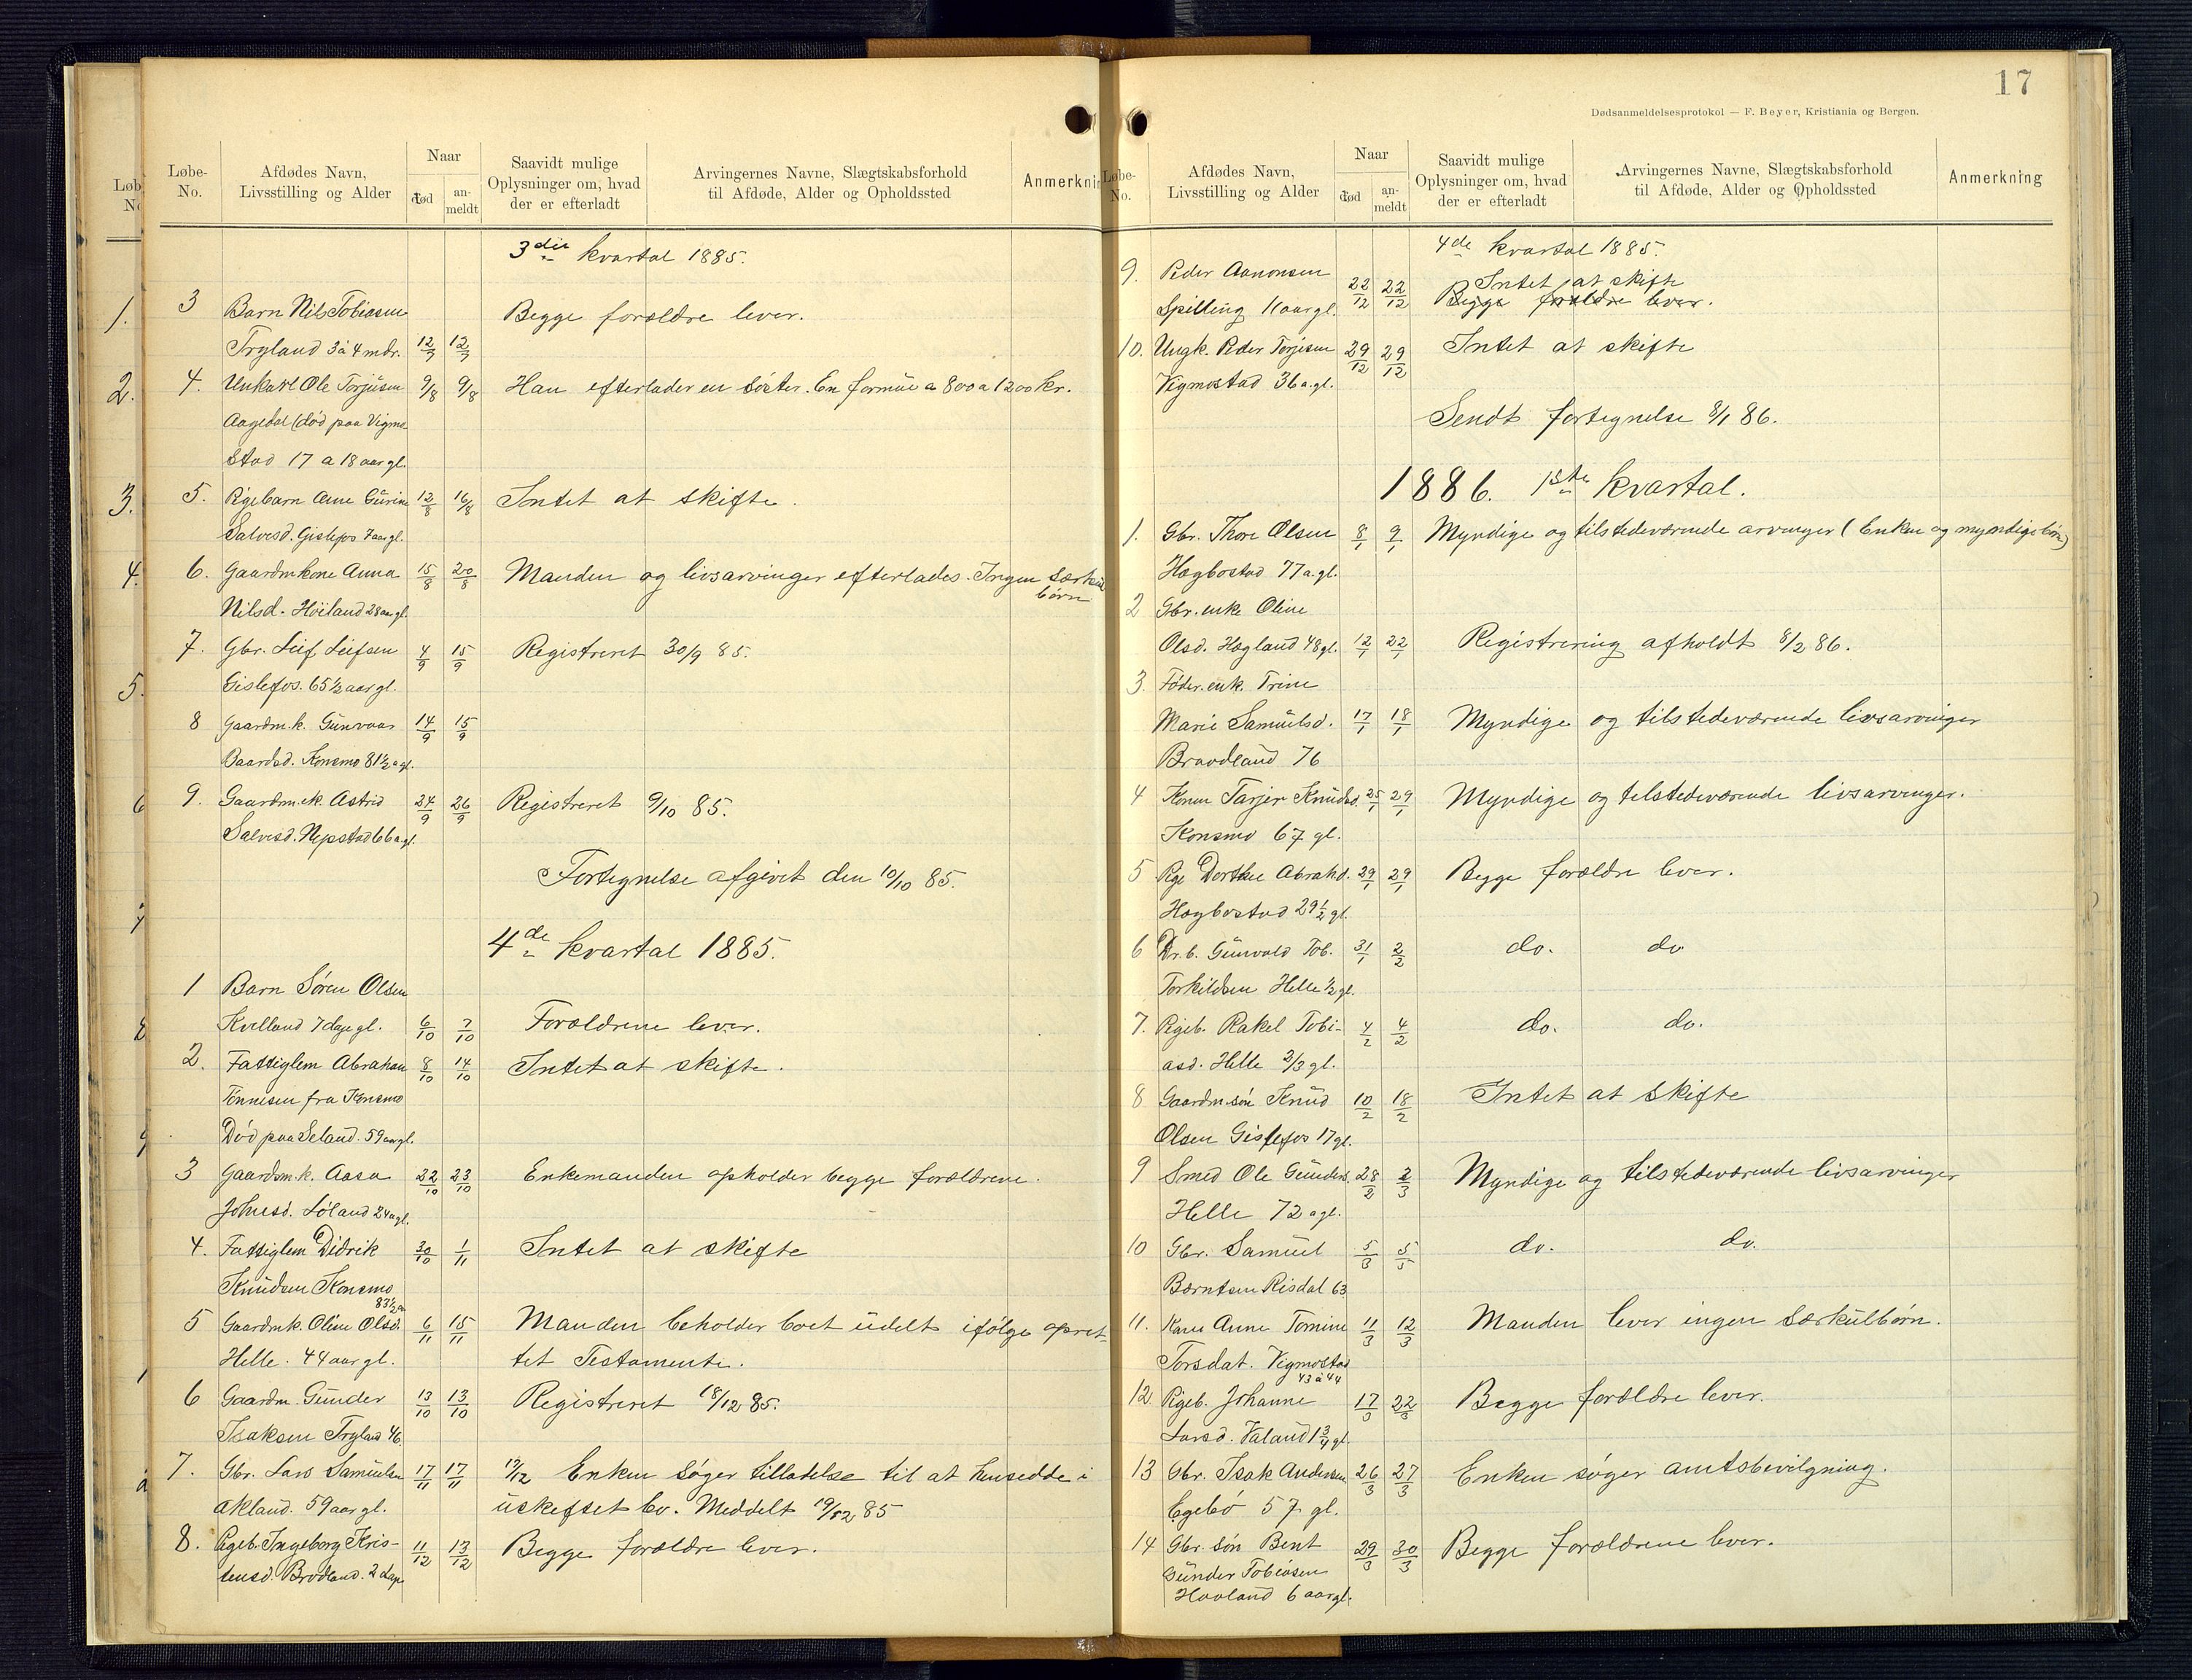 17
Dødsanmeldelsesprotokol — F. Beyer, Kristiania og Bergen.
Løbe-No.
Afdødes Navn, Livsstilling og Alder
Naar
død
an-meldt
Saavidt mulige Oplysninger om, hvad der er efterladt
Arvingernes Navne, Slægtskabsforhold til Afdøde, Alder og Opholdssted
Anmerknin
3die kvartal 1885.
3 Barn Nils Tobiasen Begge forældre lever.
Tryland 3 à 4 mdr. 12/7 12/7
4. Unkarl Ole Torjusen 9/8 9/8 Han efterlader en søster. En formue a 800 a 1200 kr.
Aagedal (død paa Vigmo
stad 17 a 18 aar gl.
5. Pigebarn Ane Gurine 12/8 16/8 Intet at skifte.
Salvesd. Gislefos 7 aar gl.
6. Gaardmkone Anna 15/8 20/8 Manden og livsarvinger efterlades. Ingen særkul
børn
Nilsd. Høiland 28 aar gl.
7. Gbr. Leif Leifsen 4/9 15/9 Registreret 30/9 85.
Gislefos. 65 1/2 aar gl.
8 Gaardm.k. Gunvaar 14/9 15/9
Baardsd. Konsmo 81 1/2 a gl.
9. Gaardm.ek. Astrid 24/9 26/9 Registreret 9/10 85.
Salvesd. Nepstad 66 a gl.
Fortegnelse afgivet den 10/10 85.
4de kvartal 1885.
1 Barn Søren Olsen
Kvelland 7 dage gl. 6/10 7/10 Forældrene lever.
2. Fattiglem Abraham 8/10 14/10 Intet at skifte.
Tønnesen fra Konsmo
Død paa Seland. 59 aar gl.
3 Gaardm.k. Aasa 22/10 23/10 Enkemanden opholder begge forældrene.
Johnsd. Løland 24 a gl.
4. Fattiglem Didrik 30/10 1/11 Intet at skifte
Knudsen Konsmo
83 1/2 a
5 Gaardmk. Oline Olsd. 6/11 15/11 Manden beholder boet udelt ifølge opret-
Helle. 44 aar gl. tet Testamente.
6 Gaardm. Gunder 13/10 13/10 Registreret 18/12 85.
Isaksen Tryland 46
7. Gbr. Lars Samuelsen 17/11 17/11 17/12 Enken søger tilladelse til at hensidde i
Akland. 59 aar gl. uskiftet bo. Meddelt 19/12 85
8. Pigeb. Ingeborg Kris- 11/12 13/12 Begge forældre lever.
tensd. Brødland. 2 dage
Løbe-No.
Afdødes Navn, Livsstilling og Alder
Naar
død
an-meldt
Saavidt mulige Oplysninger om, hvad der er efterladt
Arvingernes Navne, Slægtskabsforhold til Afdøde, Alder og Opholdssted
Anmerkning
4de kvartal 1885.
9. Peder Aanonsen 22/12 22/12 Intet at skifte
Spilling 11 aar gl. Begge forældre lever.
10. Ungk. Peder Torjesen 29/12 29/12 Intet at skifte
Vigmostad 36 a. gl.
Sendt fortegnelse 8/1 86.
1886. 1ste kvartal.
1. Gbr. Thore Olsen 8/1 9/1 Myndige og tilstedeværende arvinger (Enken og myndige børn)
Hægbostad 77 a. gl.
2 Gbr. enke Oline
Olsd. Høgland 48 gl. 12/1 22/1 Registrering afholdt 8/2 86.
3. Føder. enk. Trine
Marie Samuelsd. 17/1 18/1 Myndige og tilstedeværende livsarvinger
Braadland 76
4 Konen Tarjer Knudsd. 25/1 29/1 Myndige og tilstedeværende livsarvinger.
Konsmo 67 gl.
5 Pge Dorthe Abrahd. 29/1 29/1 Begge forældre lever.
Hægbostad 29 1/2 gl.
6 Dr.b. Gunvald Tob. 31/1 2/2 do. do
Torkildsen Helle 1/2 gl.
7. Pigeb. Rakel Tobi- 4/2 4/2 do. do.
asd. Helle 2/3 gl.
8 Gaardm.søn Knud 10/2 18/2 Intet at skifte
Olsen Gislefos 17 gl.
9 Smed Ole Gunders. 28/2 2/3 Myndige og tilstedeværende livsarvinger
Helle 72 a gl.
10 Gbr. Samuel 5/3 5/3 do. do.
Bærntsen Risdal 63
11. Kone Anne Tomine 11/3 12/3 Manden lever ingen særkulbørn.
Torsdat. Vigmostad
43 à 44
12. Pigeb. Johanne 17/3 22/3 Begge forældre lever.
Larsd. Valand 1 3/4 gl.
13 Gbr. Isak Andersen 26/3 27/3 Enken søger amtsbevilgning.
Egebø 57 gl.
14 Gbr. søn Bent 29/3 30/3 Begge forældrene lever.
Gunder Tobiasen
Haaland 6 aar gl.